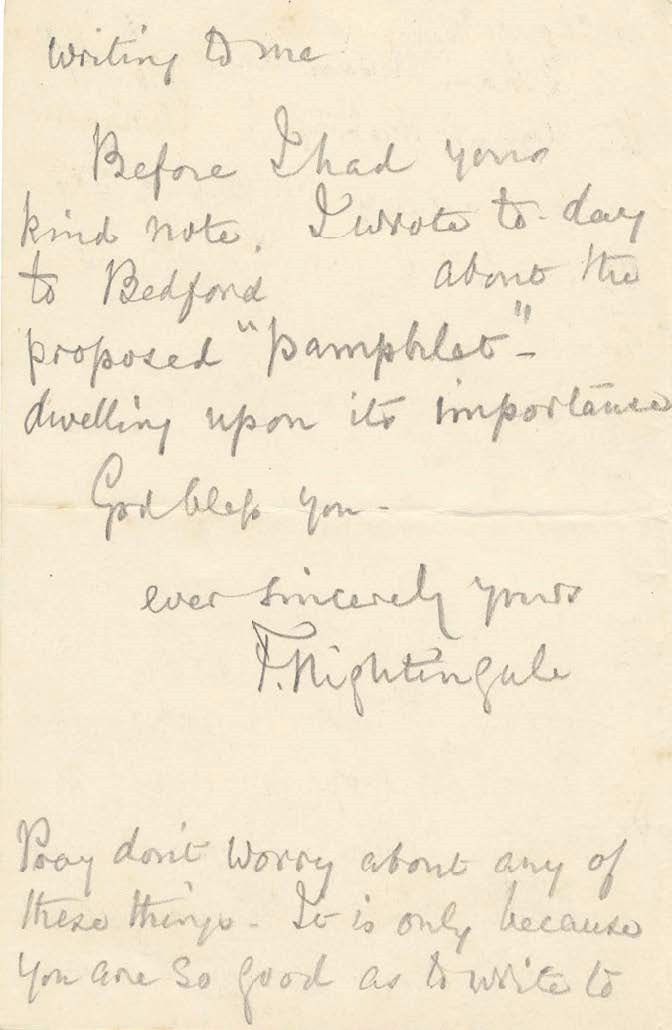 writing to me
Before I had your
kind note, I wrote to-day
to Bedford about the
proposed "pamphlet" -
dwelling upon its importance
God bless you -
ever sincerely yours
F. Nightingale
Pray don't worry about any of
these things - It is only because
you are so good as to write to